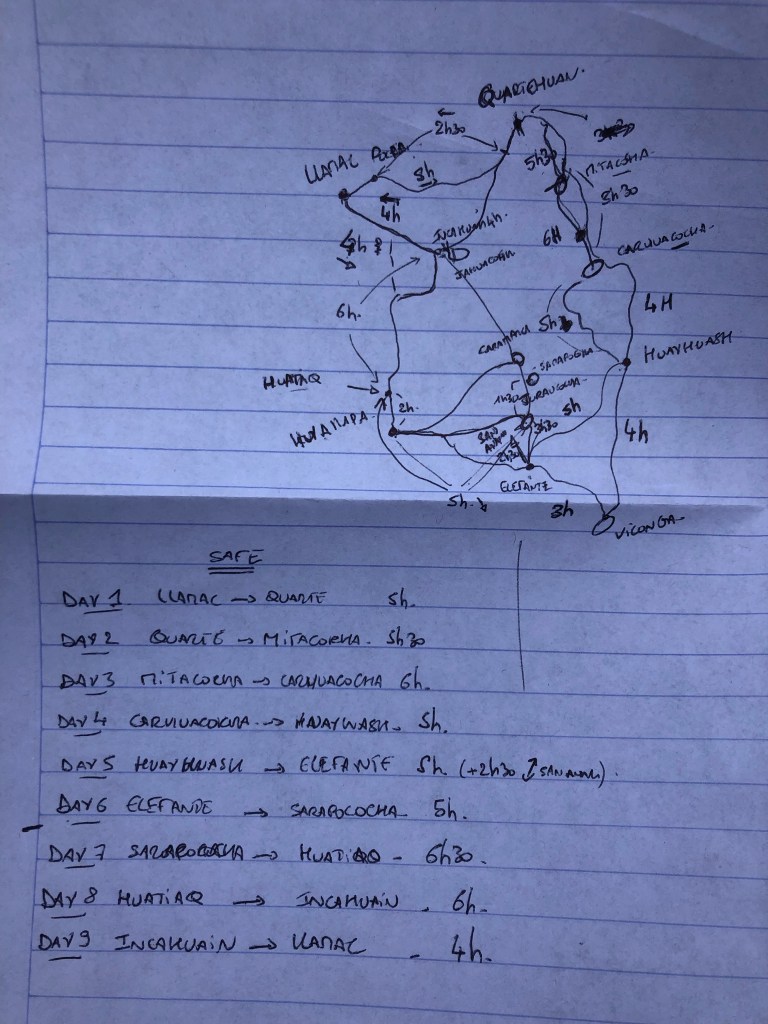 QUARTEHUAN.
2h30
LLAMAC POCPA
5h
5h30
MITACOCHA.
5h30
4h
INCAHUAIN
JAHUACOCHA
6H
CARHUACOCHA.
6h.
4H
5h
CARAMARCA
HUAYHUASH
HUATIAQ
SARAPOCOCHA
1h30
JURAUCOCHA
2h.
5h
HUAYLLAPA.
SAN
3h30
2h30
4h
ELEFANTE
5h.
3h
VICONGA
SAFE
DAY 1 LLAMAC → QUARTE 5h.
DAY 2 QUARTE → MITACOCHA. 5h30
DAY 3 MITACOCHA → CARHUACOCHA 6h.
DAY 4 CARHUACOCHA → HUAYWASH. 5h.
DAY 5 HUAYHUASH → ELEFANTE 5h. (+2h30 ↕ SAN ANTONIO).
DAY 6 ELEFANDE → SARAPOCOCHA 5h.
DAY 7 SARAPOCOCHA → HUATIAQ - 6h30.
DAY 8 HUATIAQ → INCAHUAIN . 6h.
DAY 9 INCAHUAIN → LLAMAC - 4h.